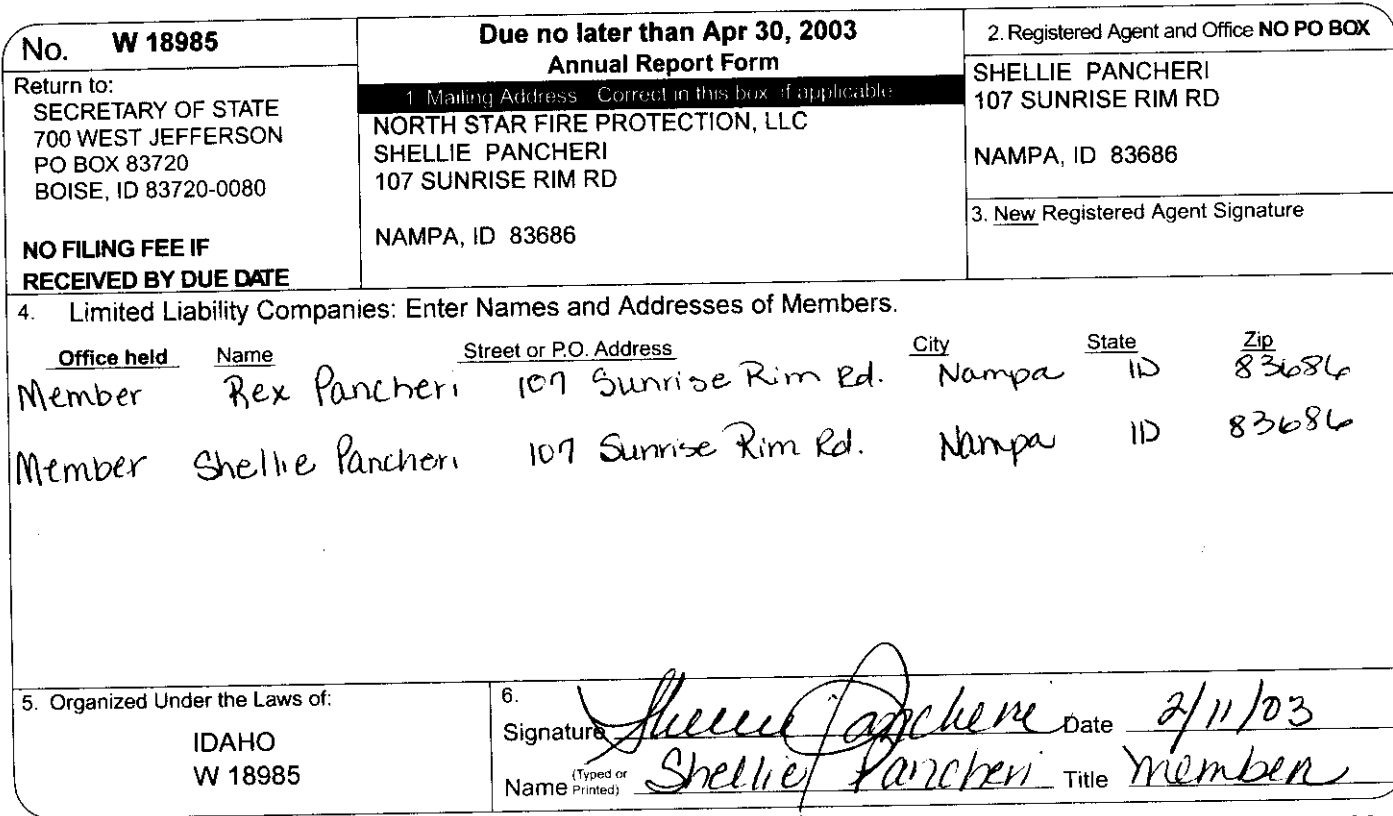 No. W 18985
Return to:
SECRETARY OF STATE
700 WEST JEFFERSON
PO BOX 83720
BOISE, ID 83720-0080
NO FILING FEE IF
RECEIVED BY DUE DATE
Due no later than Apr 30, 2003
Annual Report Form
1 Mailing Address Correct in this box if applicable
NORTH STAR FIRE PROTECTION, LLC
SHELLIE PANCHERI
107 SUNRISE RIM RD
NAMPA, ID 83686
2. Registered Agent and Office NO PO BOX
SHELLIE PANCHERI
107 SUNRISE RIM RD
NAMPA, ID 83686
3. New Registered Agent Signature
4. Limited Liability Companies: Enter Names and Addresses of Members.
Office held Name Street or P.O. Address City State Zip
Member Rex Pancheri 107 Sunrise Rim Rd. Nampa ID 83686
Member Shellie Pancheri 107 Sunrise Rim Rd. Nampa ID 83686
5. Organized Under the Laws of:
IDAHO
W 18985
6.
Signature Shellie Pancheri Date 2/11/03
Name (Typed or Printed) Shellie Pancheri Title Member